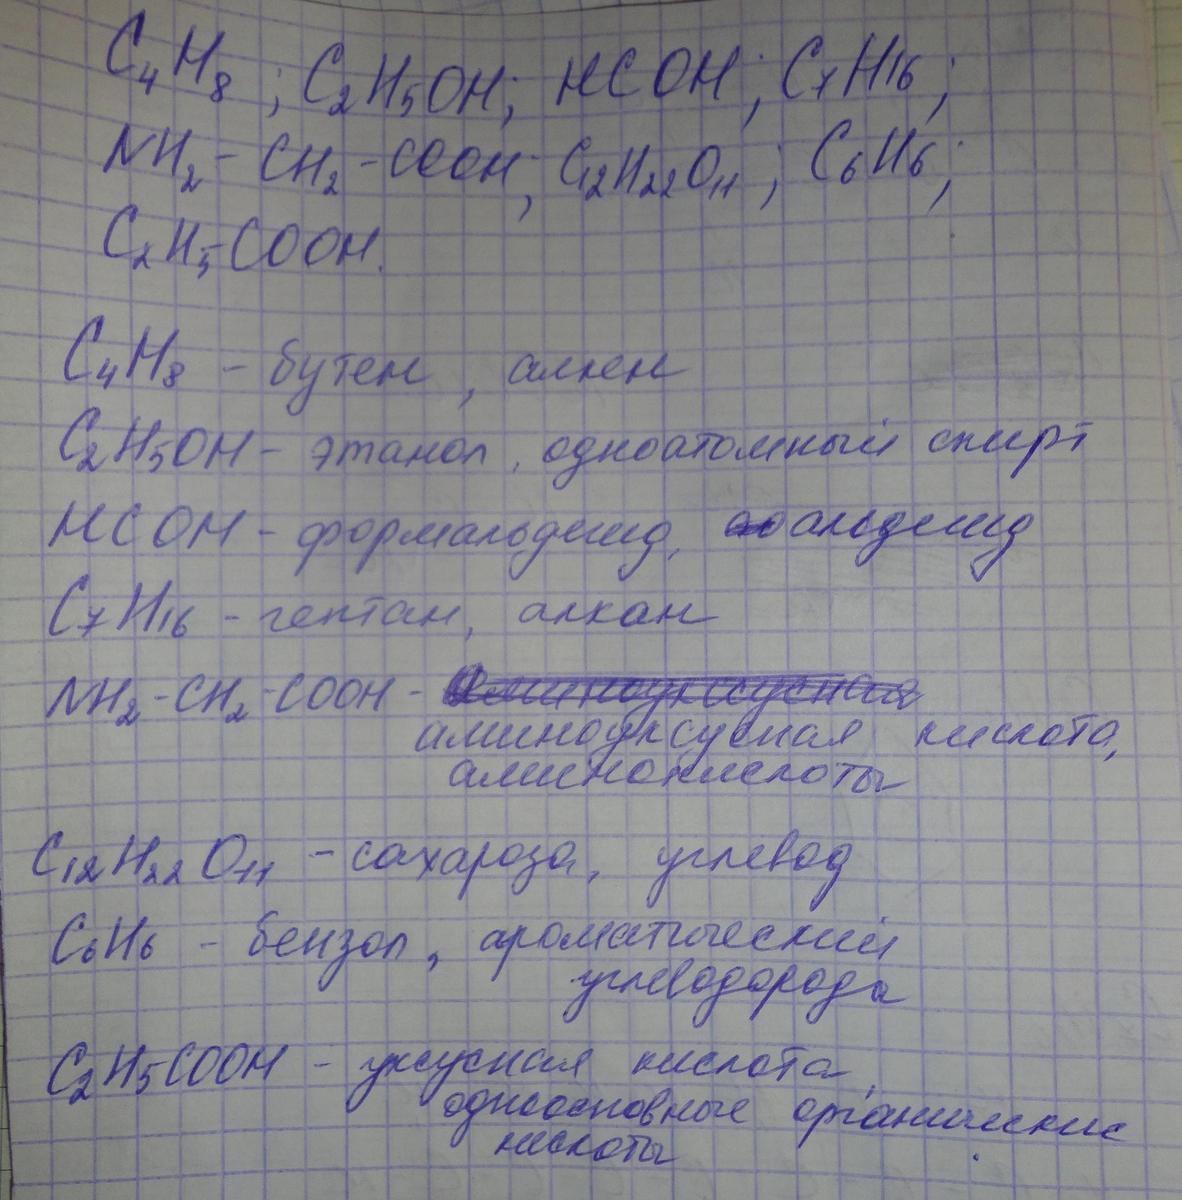 C₄H₈; C₂H₅OH; HCOH; C₇H₁₆;
NH₂-CH₂-COOH; C₁₂H₂₂O₁₁; C₆H₆;
C₂H₅COOH.
C₄H₈ - бутен, алкен
C₂H₅OH - этанол, одноатомный спирт
HCOH - формальдегид, альдегид
C₇H₁₆ - гептан, алкан
NH₂-CH₂-COOH - аминоуксусная
аминоуксусная кислота,
аминокислоты
C₁₂H₂₂O₁₁ - сахароза, углевод
C₆H₆ - бензол, ароматический
углеводорода
C₂H₅COOH - уксусная кислота,
одноосновные органические
кислоты